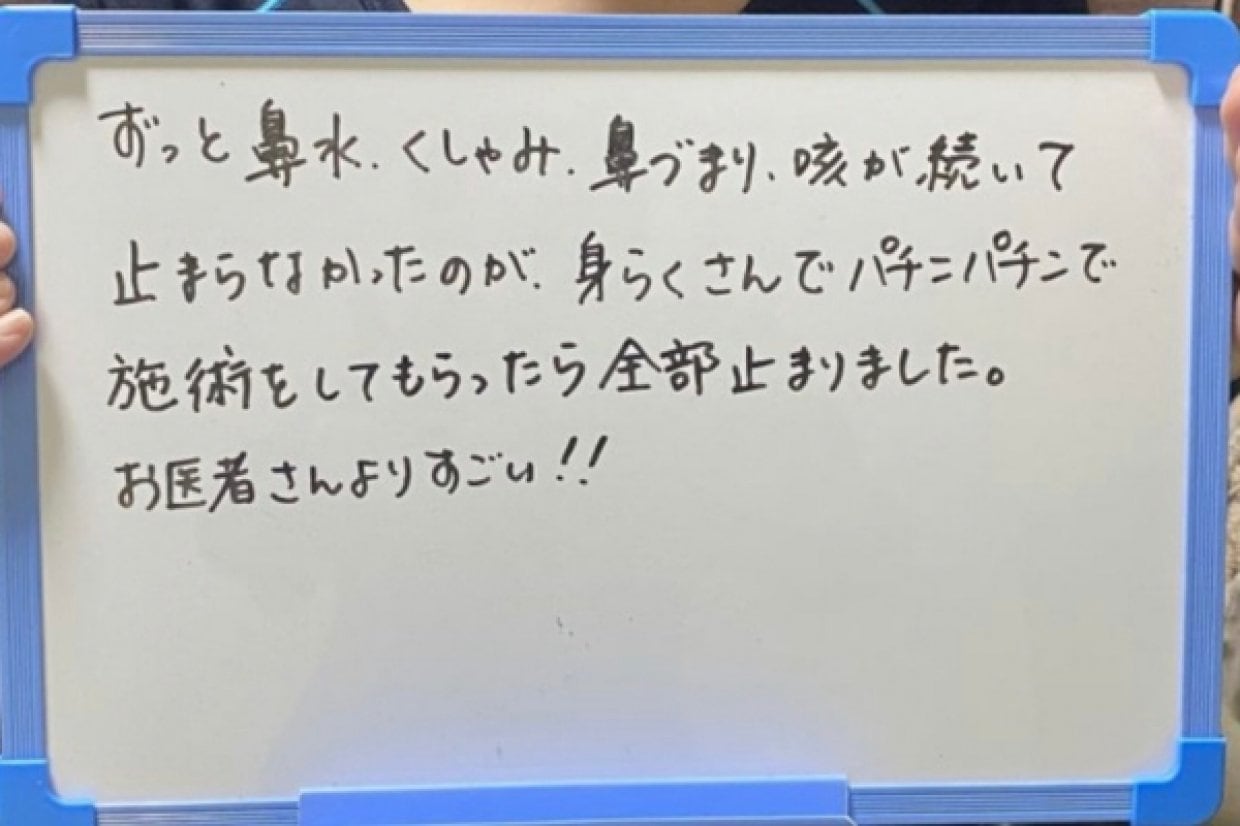 ずっと鼻水、くしゃみ、鼻づまり、咳が続いて
止まらなかったのが、身らくさんでパチニパチンで
施術をしてもらったら全部止まりました。
お医者さんよりすごい!!